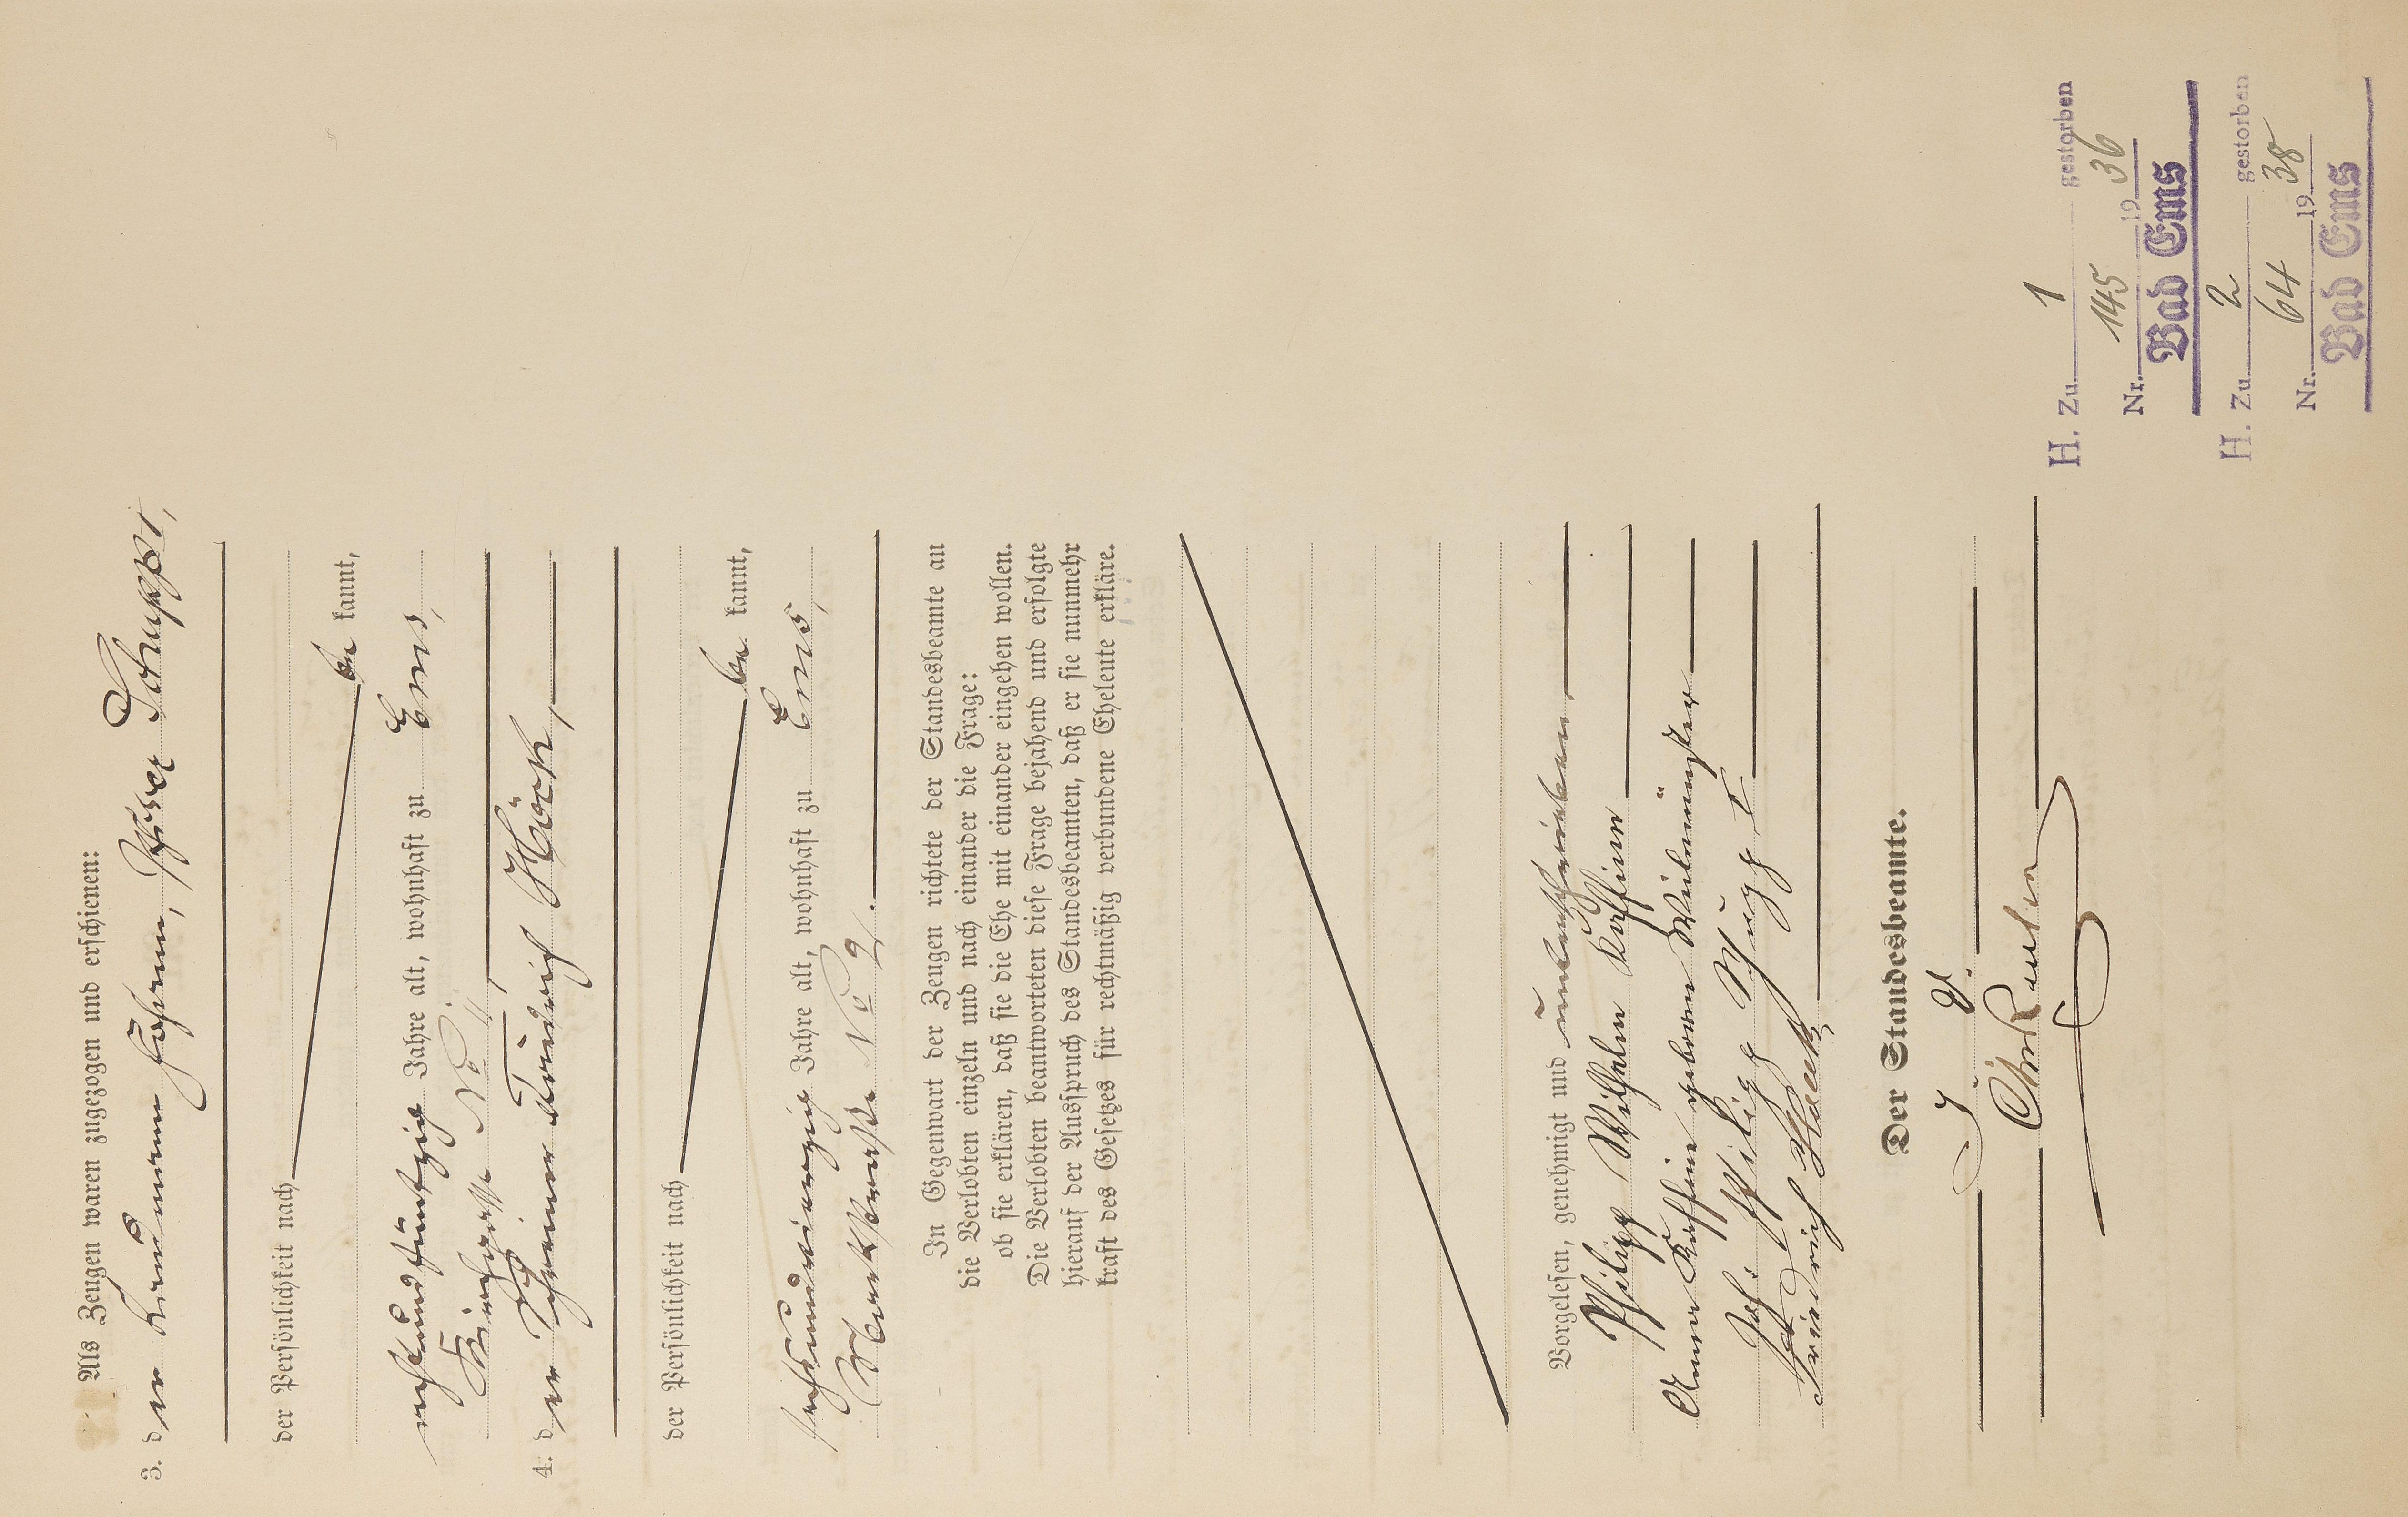 Als Zeugen waren zugezogen und erschienen:
3. der Kaufmann Johann, Schupp,
der Persönlichkeit nach
be kannt,
achtundfünfzig Jahre alt, wohnhaft zu Ems,
Kirchgasse No 11,
4. der Schreiner Friedrich Höck,
der Persönlichkeit nach
be kannt,
sechsundvierzig Jahre alt, wohnhaft zu Ems,
Marktstraße No 21.
In Gegenwart der Zeugen richtete der Standesbeamte an
die Verlobten einzeln und nach einander die Frage:
ob sie erklären, daß sie die Ehe mit einander eingehen wollen.
Die Verlobten beantworteten diese Frage bejahend und erfolgte
hierauf der Ausspruch des Standesbeamten, daß er sie nunmehr
kraft des Gesetzes für rechtmäßig verbundene Eheleute erkläre.
Vorgelesen, genehmigt und unterschrieben,
Philipp Wilhelm
Anna geboren Weilmünster
Joh. Philipp Schupp I
Friedrich
Der Standesbeamte.
J. V.
H. Zu 1 gestorben
Nr. 145 1936
Bad Ems
H. Zu 2 gestorben
Nr. 64 1938
Bad Ems